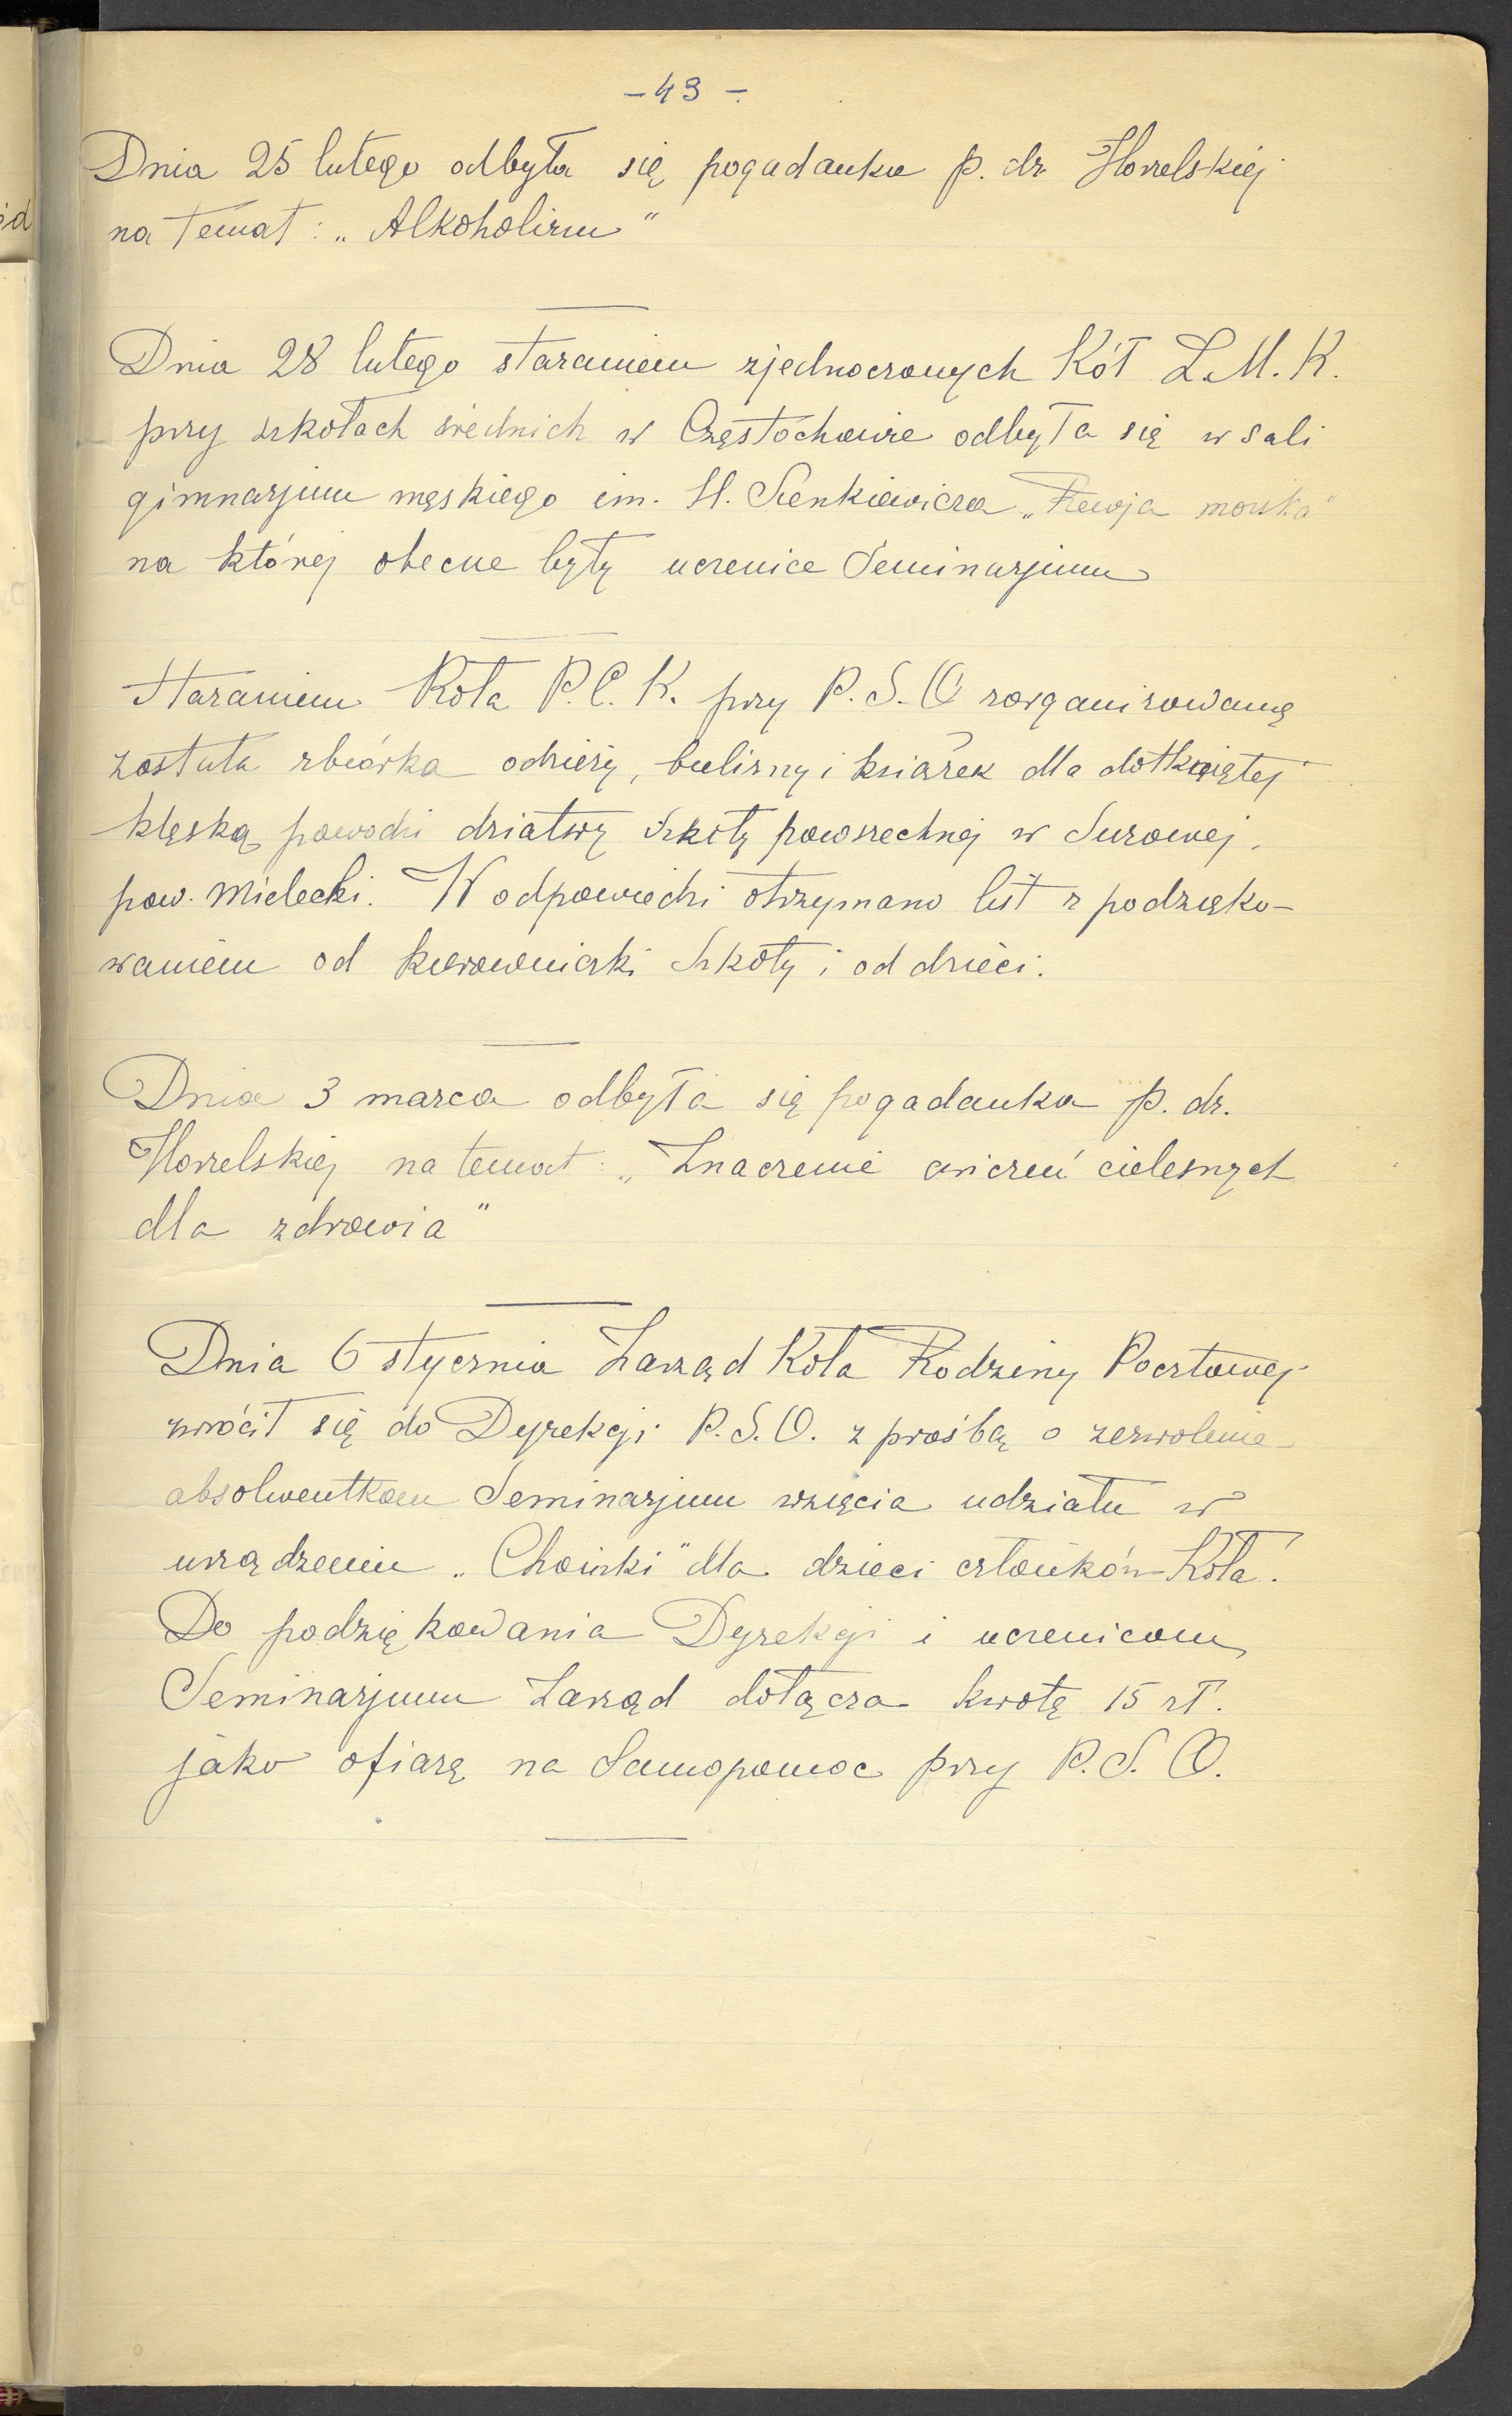 - 43 -
Dnia 25 lutego odbyła się pogadanka p. dr Horzelskiej
na temat: „Alkoholizm"
Dnia 28 lutego staraniem zjednoczonych Kół L.M.K.
przy szkołach średnich w Częstochowie odbyła się w sali
gimnazjum męskiego im. H. Sienkiewicza „Rewja morska"
na której obecne były uczenice Seminarjum
Staraniem Koła P.C.K. przy P.S.O zorganizowaną
została zbiórka odzieży, bielizny i książek dla dotkniętej
klęską powodzi dziatwy szkoły powszechnej w Surowej,
pow. Mielecki. W odpowiedzi otrzymano list z podzięko-
waniem od kierowniczki Szkoły i od dzieci.
Dnia 3 marca odbyła się pogadanka p. dr.
Horzelskiej na temat: „Znaczenie ćwiczeń cielesnych
dla zdrowia"
Dnia 6 stycznia Zarząd Koła Rodziny Pocztowej
zwrócił się do Dyrekcji P.S.O. z prośbą o zezwolenie
absolwentkom Seminarjum wzięcia udziału w
urządzeniu „Choinki" dla dzieci członków Koła.
Do podziękowania Dyrekcji i uczenicom
Seminarjum Zarząd dołącza kwotę 15 zł.
jako ofiarę na Samopomoc przy P.S.O.